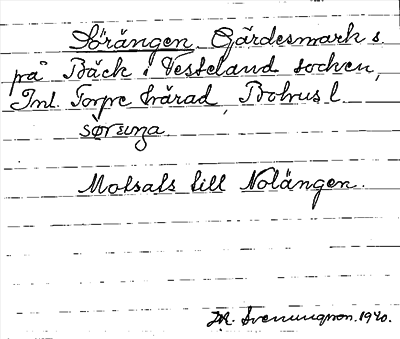 Sörängen. Gärdesmark s.
på Bäck i Vesteland socken,
Inl. Torpe härad, Bohusl.
Motsats till Nolängen.
M. Svenungson. 1940.